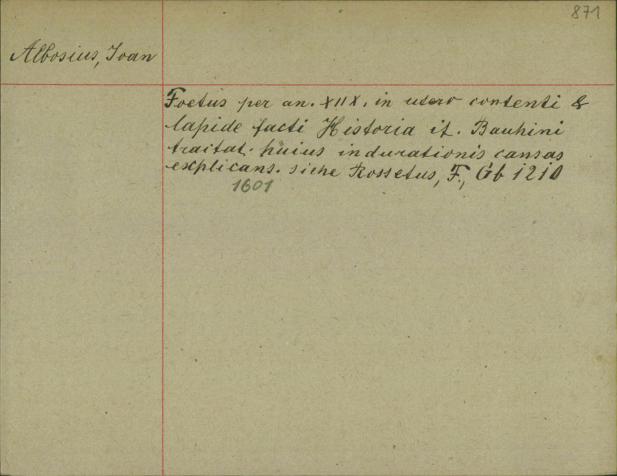 871
Albosius, Joan
Foetus per an. XIIX. in utero contenti &
lapide facti Historia it. Bauhini
tractat. hŭius indurationis causas
explicans. siehe Rossetus, F., Gb 1210
1601